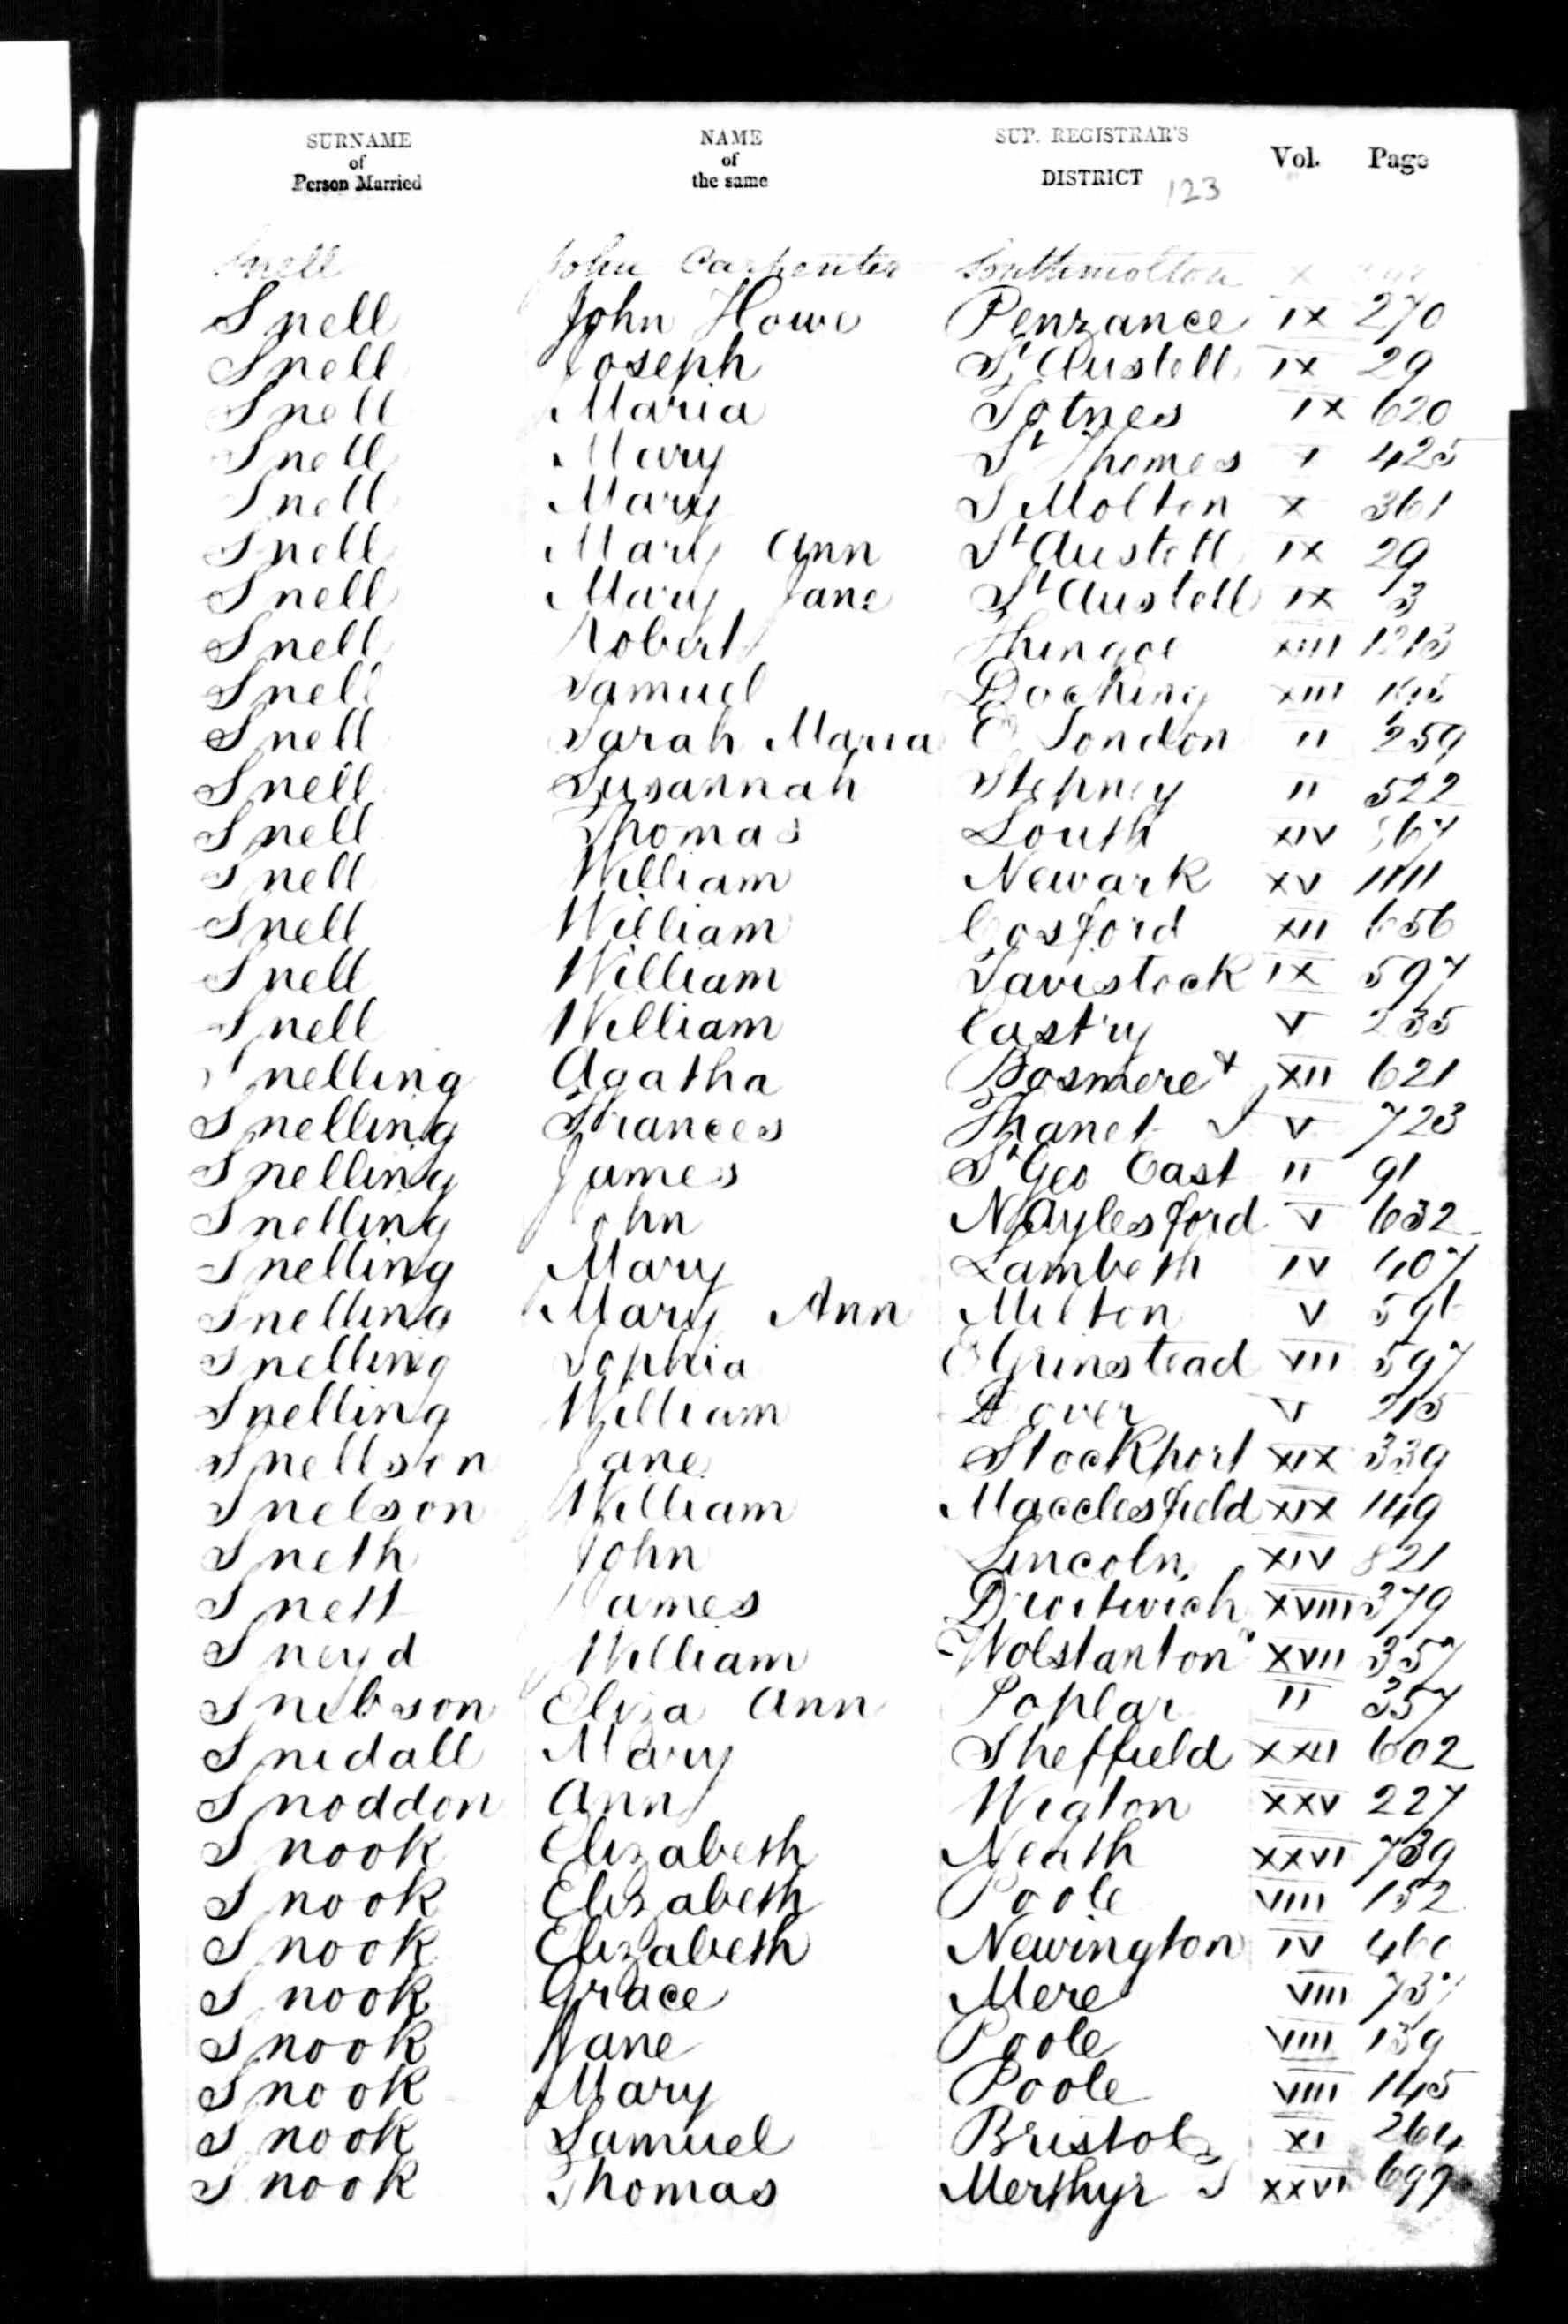 SURNAME of Person Married NAME of the same SUP. REGISTRAR'S DISTRICT Vol. Page
123
Snell John Carpenter Southmolton X
Snell John Howe Penzance IX 270
Snell Joseph St Austell IX 29
Snell Maria Totnes IX 620
Snell Mary St Thomas 425
Snell Mary S Molton X 361
Snell Mary Ann St Austell IX 29
Snell Mary Jane St Austell IX 3
Snell Robert Thingoe XIII
Snell Samuel Docking XIII
Snell Sarah Maria E London II 259
Snell Susannah Stepney II 522
Snell Thomas Louth XIV
Snell William Newark XV 1111
Snell William Cosford XII 656
Snell William Tavistock IX 597
Snell William Eastry V 235
Snelling Agatha Bosmere + XII 621
Snelling Frances Thanet V 723
Snelling James St Geo East II 91
Snelling John N Aylesford V 632
Snelling Mary Lambeth IV
Snelling Mary Ann Milton V
Snelling Sophia E Grinstead VII 597
Snelling William Dover V 215
Snellson Jane Stockport XIX 339
Snelson William Macclesfield XIX 149
Sneth John Lincoln XIV 821
Snett James Droitwich XVIII 379
Sneyd William Wolstanton XVII 357
Snibson Eliza Ann Poplar II 357
Snidall Mary Sheffield XXII 602
Snoddon Ann Wigton XXV 227
Snook Elizabeth Neath XXVI 739
Snook Elizabeth Poole VIII 152
Snook Elizabeth Newington IV
Snook Grace Mere VIII
Snook Jane Poole VIII 139
Snook Mary Poole VIII 145
Snook Samuel Bristol XI 264
Snook Thomas Merthyr XXVI 699